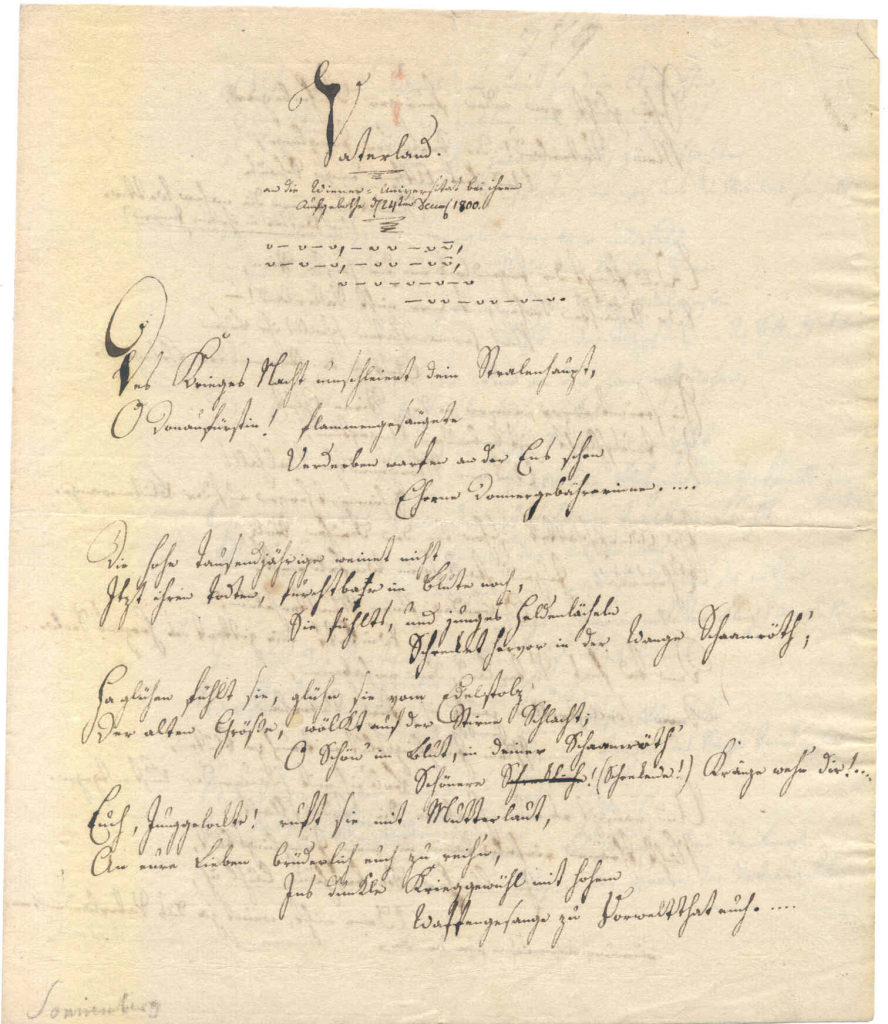 Vaterland.
an die Wiener-Universität bei ihrem
Aufgebothe 24ten Decemb 1800.
υ – υ – υ, – υ υ – υ ῡ,
υ – υ – υ, – υ υ – υ ῡ,
υ – υ – υ – υ – υ
– υ υ – υ υ – υ – υ.
Des Krieges Nacht umschleiert dein Stralenhaupt,
O Donaufürstin! flammengesäugete
Verderben warfen an der Ens schon
Eherne Donnergebährerinnen.....
Die hohe Tausendjährige weinet nicht
Itzt ihren Todten, furchtbar im Blute noch,
Sie fühlts, und junges Heldenlächeln
Schrecket hervor in der Wange Schaamröth',
Ha glühen fühlt sie, glühn sie vom Edelstolz
Der alten Größe, wölkt auf der Stirne Schlacht;
O Schön' im Blut, in deiner Schaamröth'
Schönere Schreckliche! (Schrekende!) Kränze wehn dir!....
Euch, Junggelockte! ruft sie mit Mutterlaut,
An eure Lieben brüderlich euch zu reih'n,
Ins dunkle Krieggewühl mit hohem
Waffengesange zu Vorweltthat euch.....
Sonnenberg